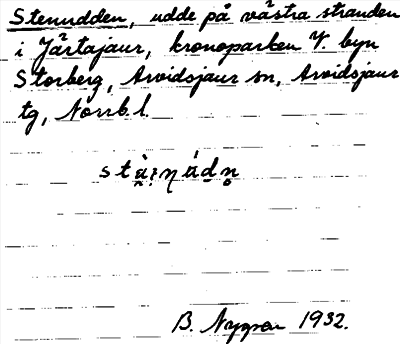 Stenudden, udde på västra stranden
i Järtajaur, kronoparken V. byn
Storberg, Arvidsjaur sn, Arvidsjaur
tg, Norrb. l.
B. Nygren 1932.